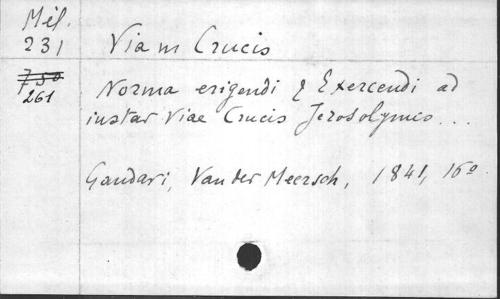 Mél.
231 Viam Crucis
750
261 Norma erigendi & Exercendi ad
instar Viae Crucis Jerosolymco...
Gandavi, Van der Meersch, 1841, 16º